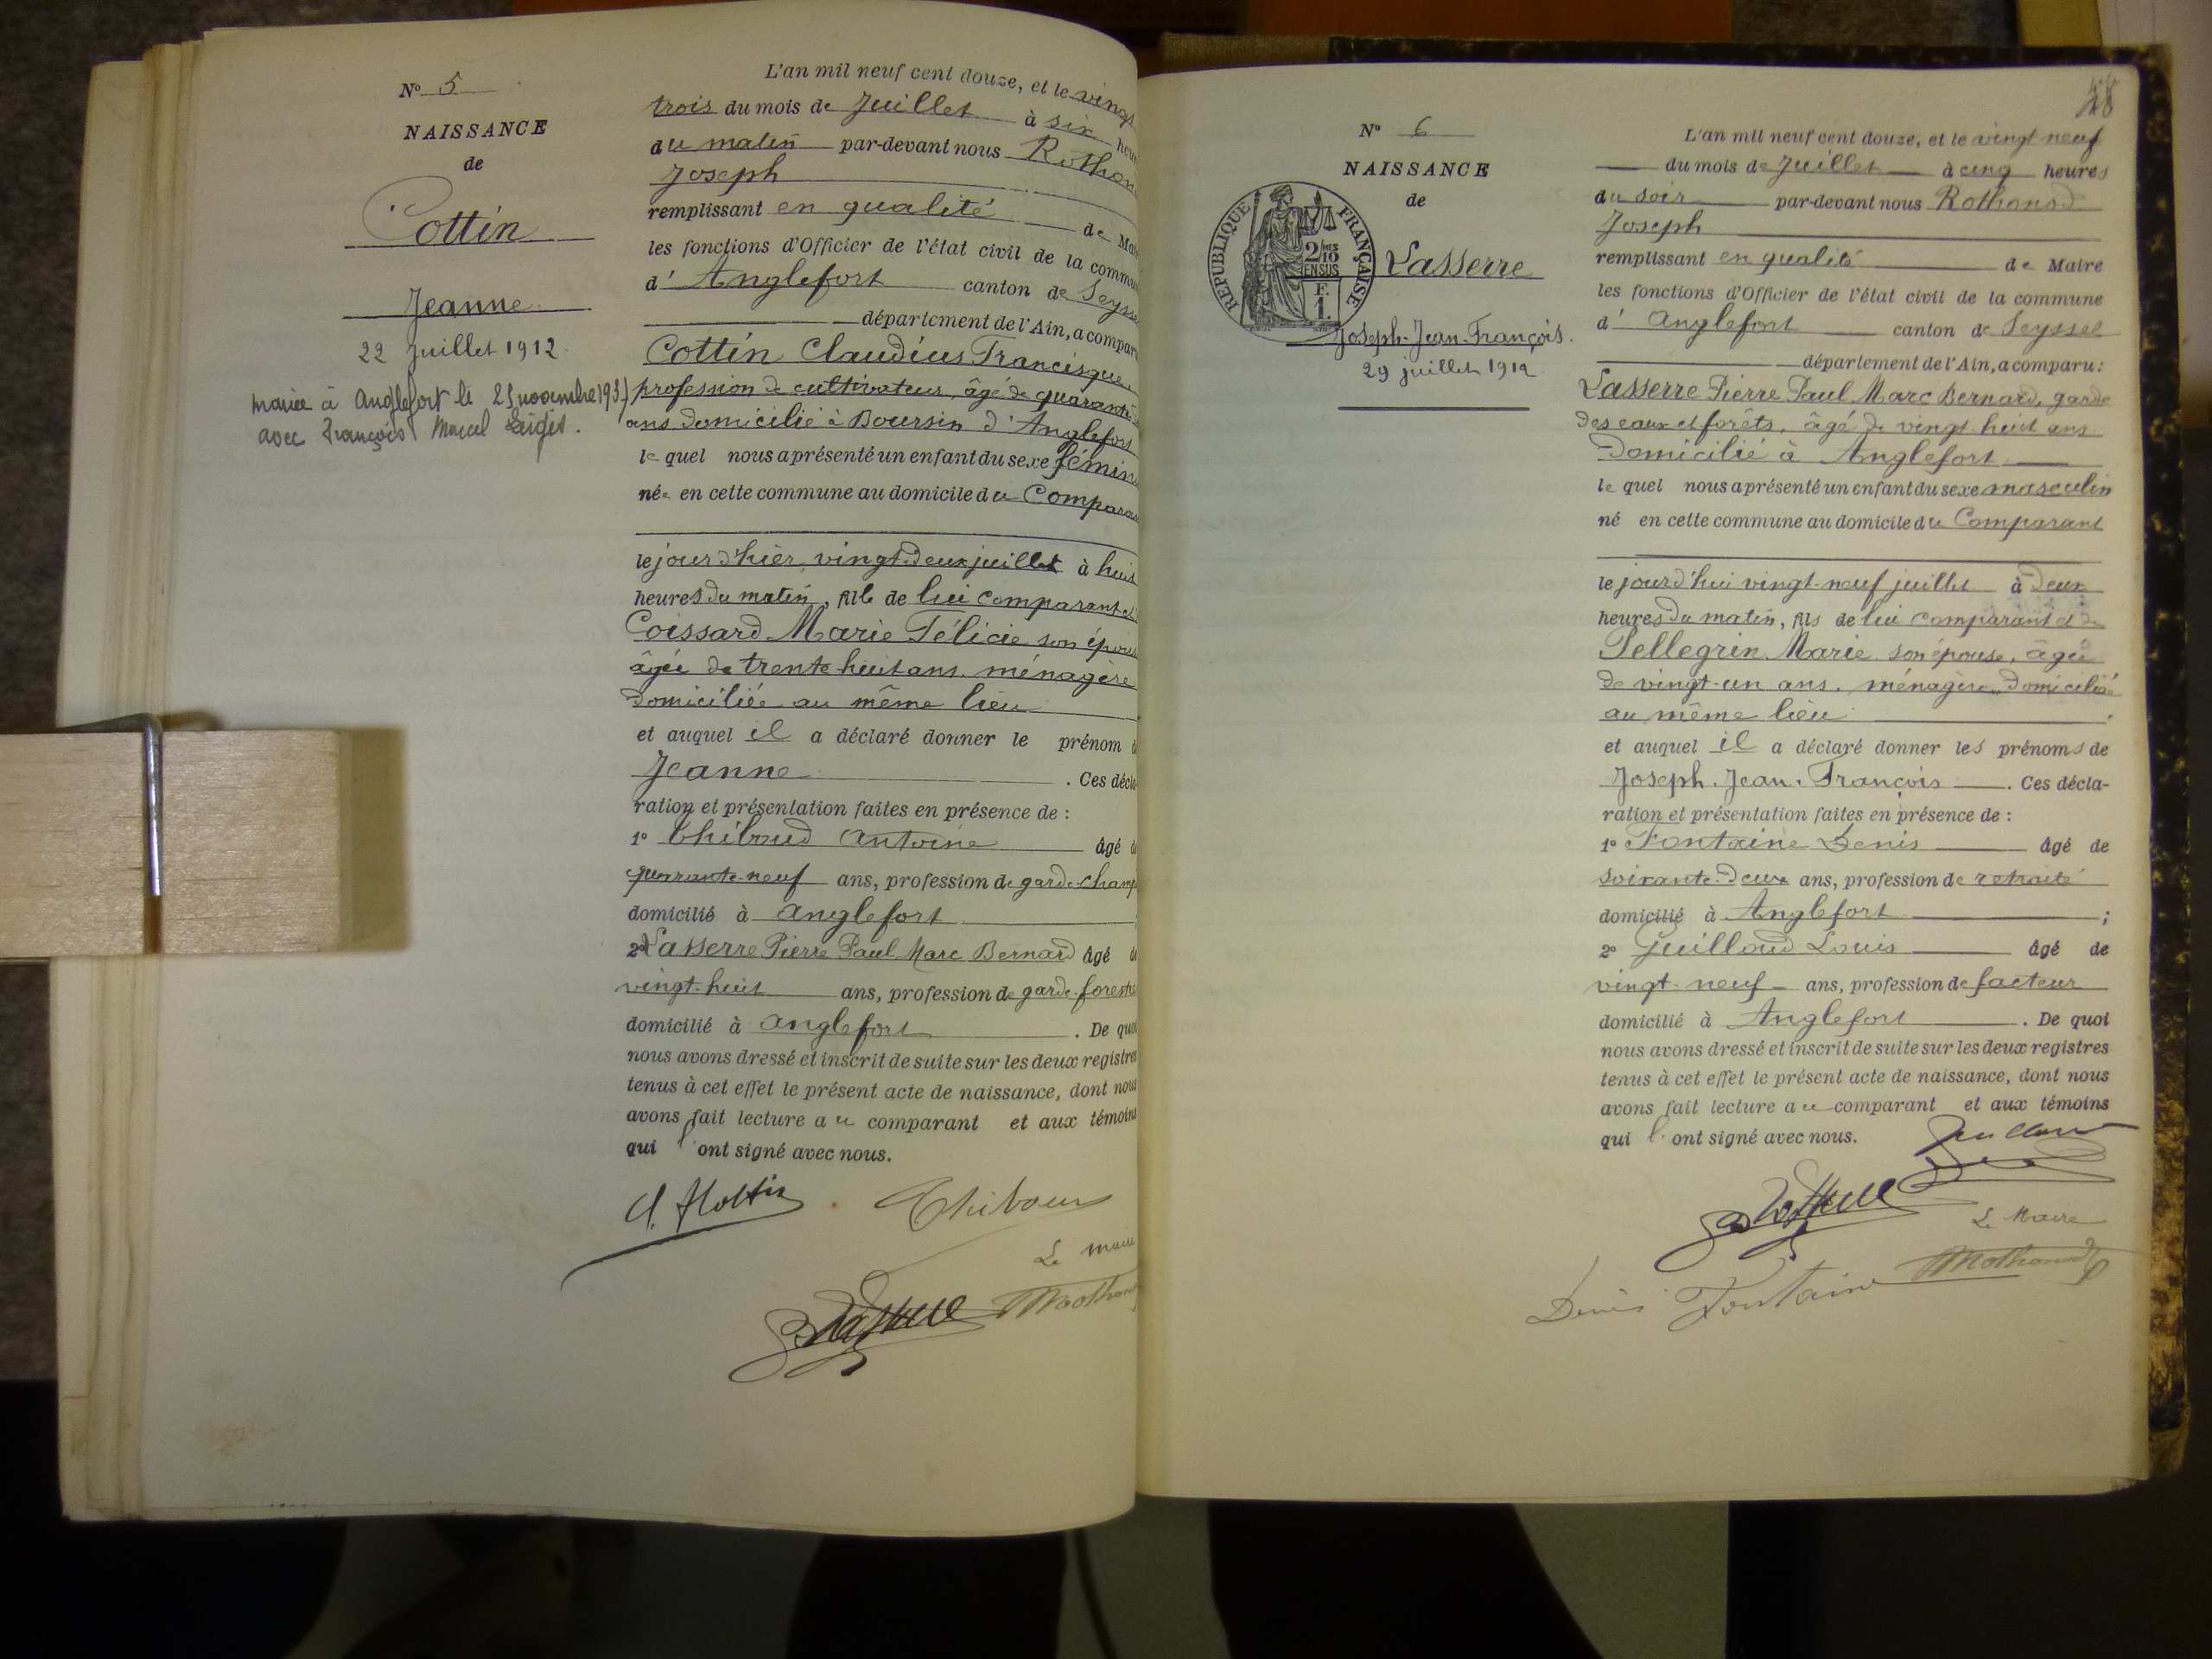 N° 5
NAISSANCE
de
Cottin
Jeanne
22 Juillet 1912
mariée à Anglefort le 25 novembre 193
avec François Marcel
L'an mil neuf cent douze, et le vingt
trois du mois de Juillet à six heur
du matin par-devant nous Rothon
Joseph
remplissant en qualité de Mai
les fonctions d'Officier de l'état civil de la commu
d' Anglefort canton de Seysse
département de l'Ain, a compar
Cottin Claudius Francisque
profession de cultivateur, âgé de quarante
ans domicilié à Boursin d'Anglefort
lequel nous a présenté un enfant du sexe fémin
née en cette commune au domicile du Compara
le jour d'hier vingt-deux juillet à huit
heures du matin, fille de lui comparant et
Coissard Marie Félicie son épous
âgée de trente huit ans, ménagère
domiciliée au même lieu
et auquel il a déclaré donner le prénom d
Jeanne. Ces décla-
ration et présentation faites en présence de :
1° Thiboud Antoine âgé d
quarante-neuf ans, profession de garde-champ
domicilié à Anglefort
2° Lasserre Pierre Paul Marc Bernard âgé d
vingt-huit ans, profession de garde-foresti
domicilié à Anglefort. De quoi
nous avons dressé et inscrit de suite sur les deux registres
tenus à cet effet le présent acte de naissance, dont nous
avons fait lecture au comparant et aux témoins
qui l'ont signé avec nous.
Thiboud
Le maire
48
N° 6
NAISSANCE
de
RÉPUBLIQUE FRANÇAISE
2/10 EN SUS
F. 1.
Lasserre
Joseph-Jean-François.
29 juillet 1912
L'an mil neuf cent douze, et le vingt neuf
du mois de Juillet à cinq heures
du soir par-devant nous Rothonod
Joseph
remplissant en qualité de Maire
les fonctions d'Officier de l'état civil de la commune
d' Anglefort canton de Seyssel
département de l'Ain, a comparu :
Lasserre Pierre Paul Marc Bernard, garde
des eaux et forêts, âgé de vingt huit ans
domicilié à Anglefort
lequel nous a présenté un enfant du sexe masculin
né en cette commune au domicile du Comparant
le jourd'hui vingt-neuf juillet à deux
heures du matin, fils de lui comparant et de
Pellegrin Marie son épouse, âgée
de vingt-un ans, ménagère, domiciliée
au même lieu
et auquel il a déclaré donner les prénoms de
Joseph. Jean. François. Ces décla-
ration et présentation faites en présence de :
1° Fontaine Denis âgé de
soixante-deux ans, profession de retraité
domicilié à Anglefort ;
2° Guilloud Louis âgé de
vingt-neuf ans, profession de facteur
domicilié à Anglefort. De quoi
nous avons dressé et inscrit de suite sur les deux registres
tenus à cet effet le présent acte de naissance, dont nous
avons fait lecture au comparant et aux témoins
qui l'ont signé avec nous.
Le Maire
Denis Fontaine